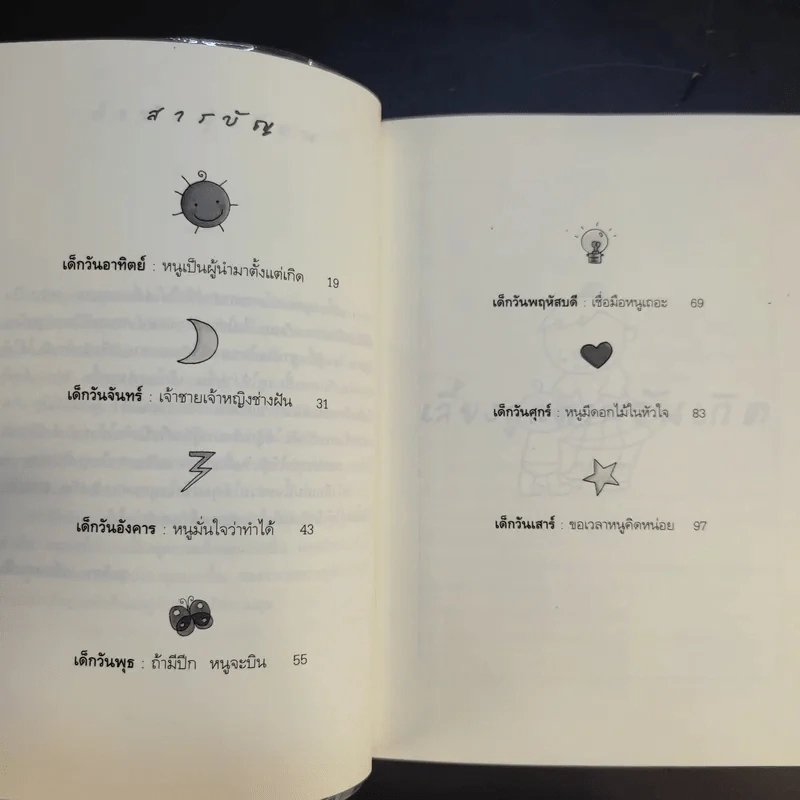 สารบัญ
เด็กวันอาทิตย์ : หนูเป็นผู้นำมาตั้งแต่เกิด 19
เด็กวันจันทร์ : เจ้าชายเจ้าหญิงช่างฝัน 31
เด็กวันอังคาร : หนูมั่นใจว่าทำได้ 43
เด็กวันพุธ : ถ้ามีปีก หนูจะบิน 55
เด็กวันพฤหัสบดี : เชื่อมือหนูเถอะ 69
เด็กวันศุกร์ : หนูมีดอกไม้ในหัวใจ 83
เด็กวันเสาร์ : ขอเวลาหนูคิดหน่อย 97